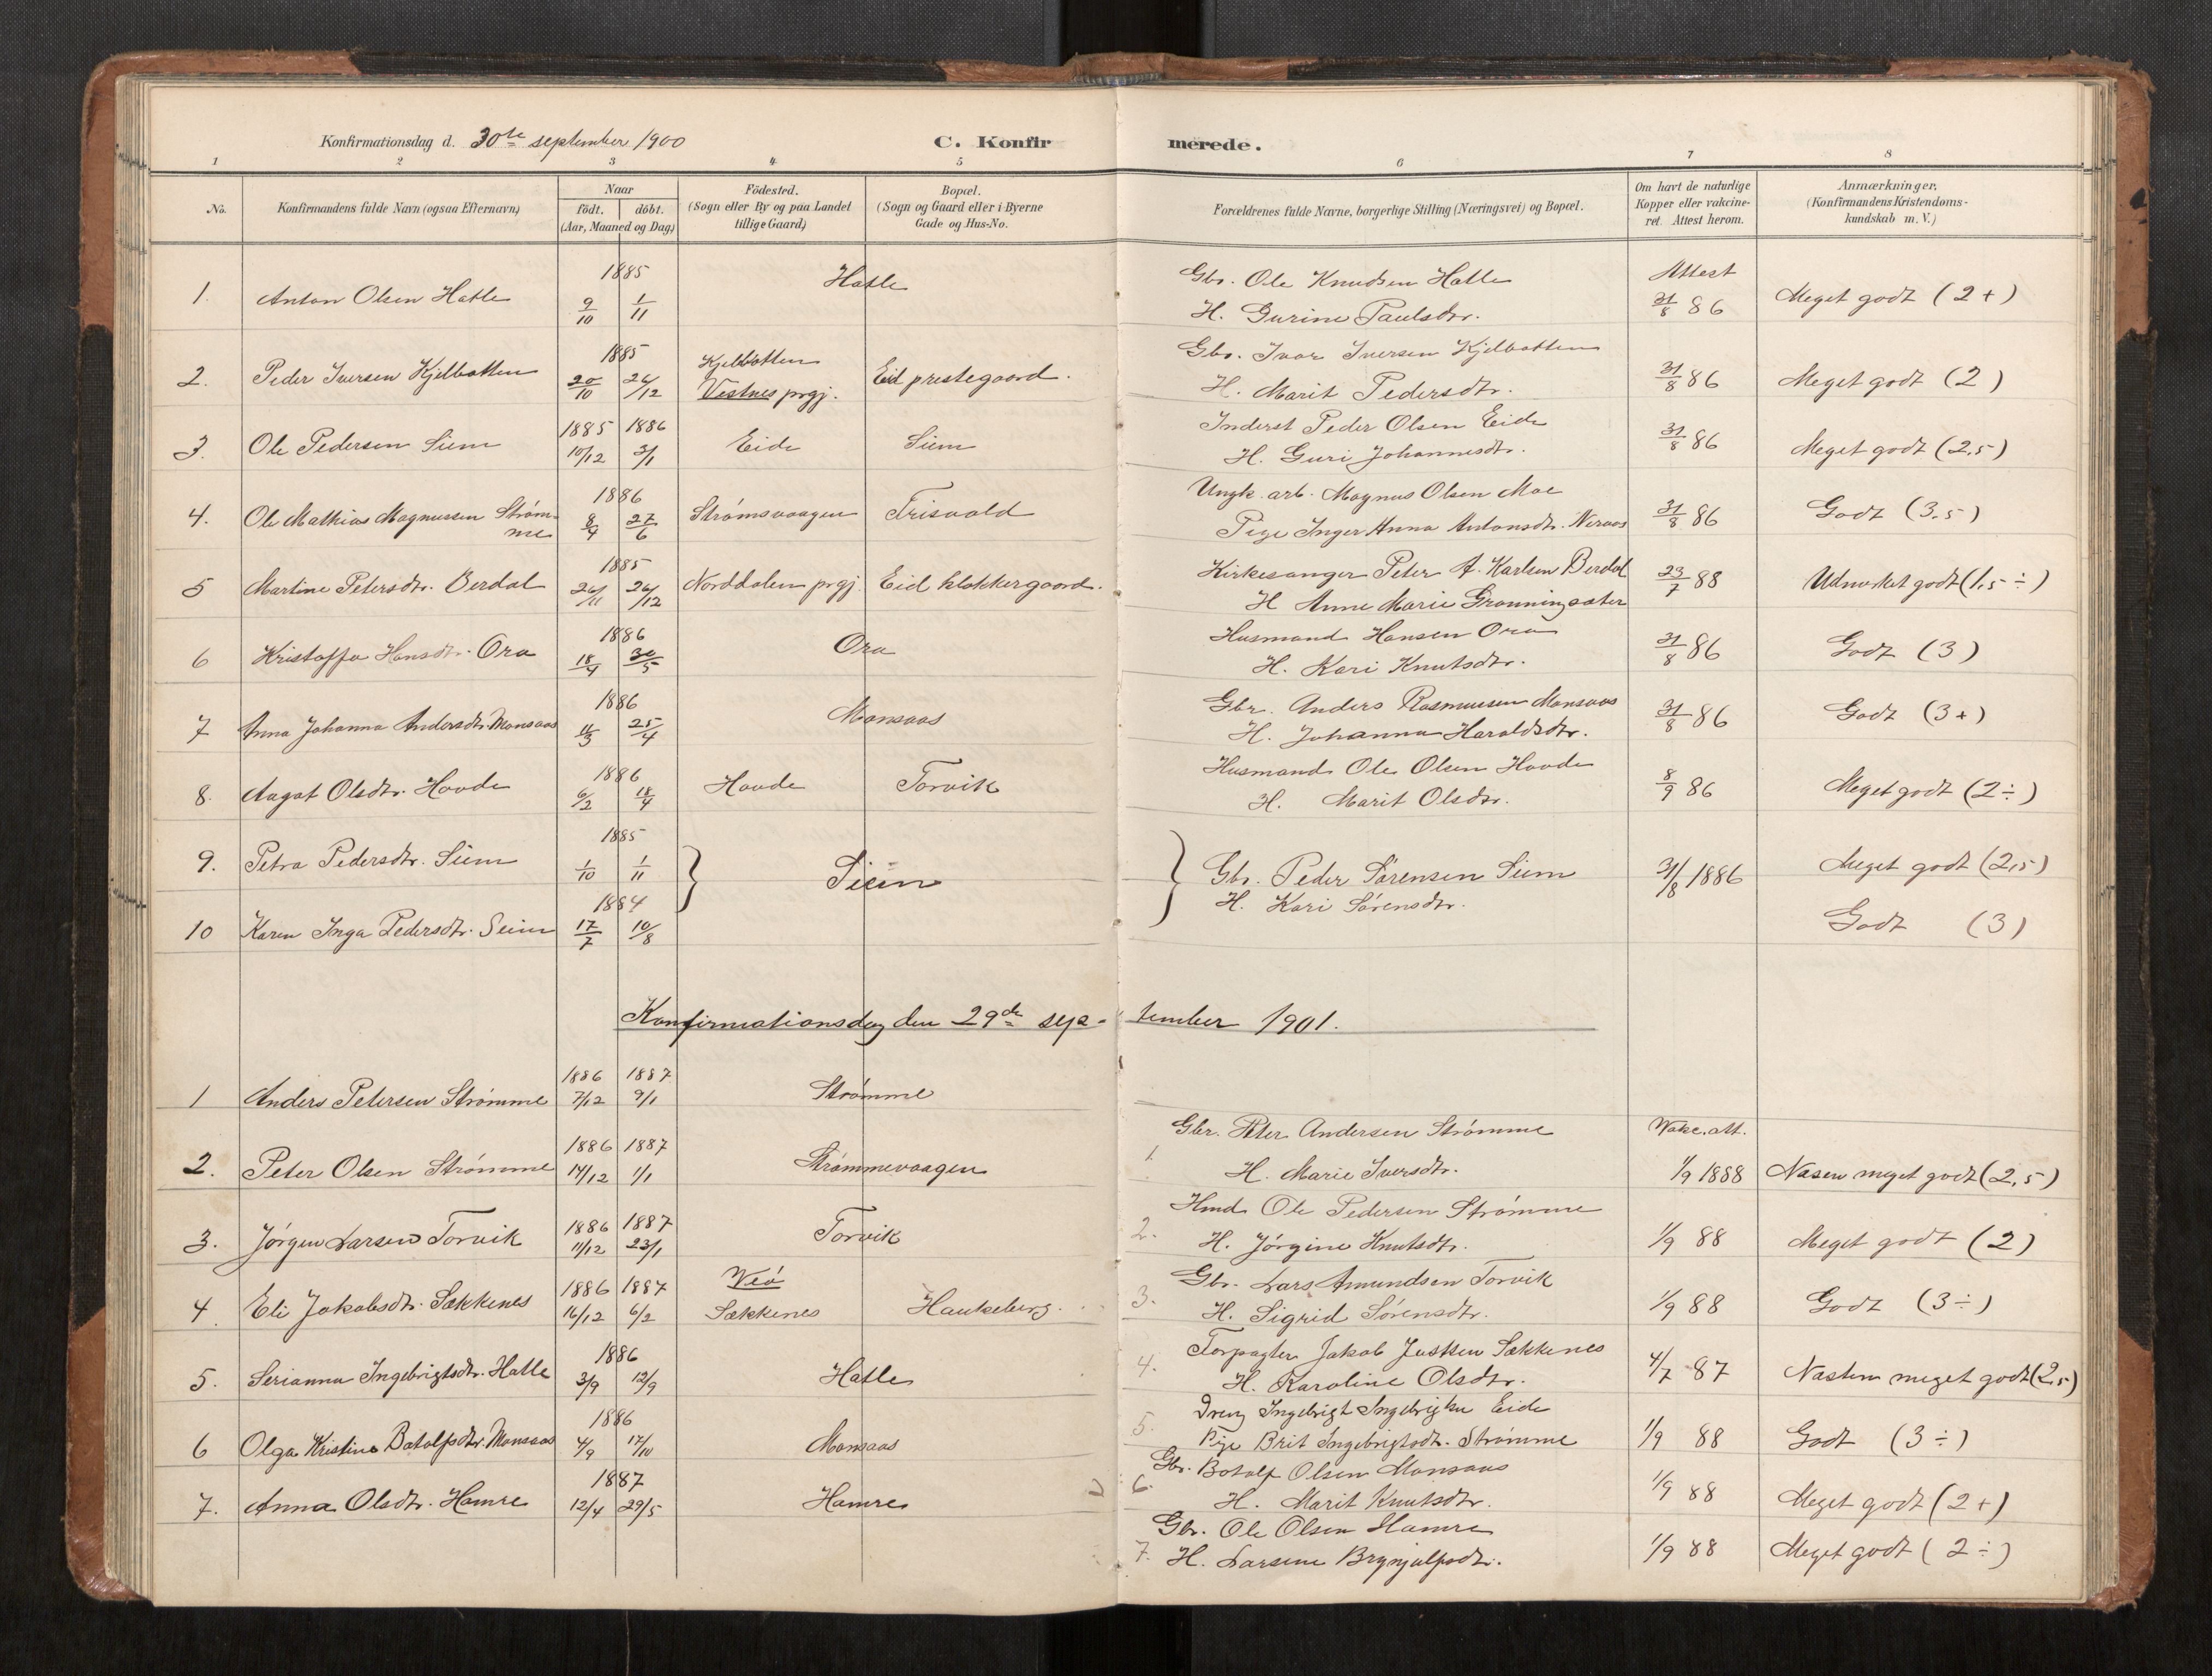 Konfirmationsdag d. 30te september 1900 C. Konfirmerede.
1 2 3 4 5 6 7 8
No. Konfirmandens fulde Navn (ogsaa Efternavn) Naar födt. döbt. (Aar, Maaned og Dag) Födested. (Sogn eller By og paa Landet tillige Gaard) Bopæl. (Sogn og Gaard eller i Byerne Gade og Hus-No. Forældrenes fulde Navne, borgerlige Stilling (Næringsvei) og Bopæl. Om havt de naturlige Kopper eller vakcineret. Attest herom. Anmærkninger. (Konfirmandens Kristendomskundskab m. V.)
1. Anton Olsen Hatle 1885 9/10 1/11 Hatle Gbr. Ole Knudsen Hatle Attest
H. Gurine Paulsdtr. 31/8 86 Meget godt (2+)
2. Peder Iversen Kjelbotten 1885 20/10 26/12 Kjelbotten Vestnes prgj. Eid prestegaard. Gbr. Ivar Iversen Kjelbotten
H. Marit Pedersdtr. 31/8 86 Meget godt (2)
3. Ole Pedersen Siem 1885 10/12 1886 3/1 Eide Siem Inderst Peder Olsen Eide
H. Guri Johannesdtr. 31/8 86 Meget godt (2,5)
4. Ole Mathias Magnussen Strømme 1886 8/4 27/6 Strømsvaagen Trisvold Ungk. arb. Magnus Olsen Moe
Pige Inger Anna Antonsdtr. Neraas 31/8 86 Godt (3.5)
5 Martine Petersdtr. Berdal 1885 26/11 26/12 Norddalen prgj. Eid klokkergaard. Kirkesanger Peter A. Karlsen Berdal
H Anne Marie Grønningsæter 23/7 88 Udmærket godt (1,5 ÷)
6 Kristoffa Hansdtr. Ora 1886 18/4 30/5 Ora Husmand Hansen Ora
H. Kari Knutsdtr. 31/8 86 Godt (3)
7 Anna Johanna Andersdtr. Monsaas 1886 11/3 25/4 Monsaas Gbr. Anders Rasmussen Monsaas
H. Johanna Haraldsdtr. 31/8 86 Godt (3+)
8. Aagot Olsdtr. Hovde 1886 6/2 18/4 Hovde Torvik Husmand Ole Olsen Hovde
H. Marit Olsdtr. 8/9 86 Meget godt (2÷)
9. Petra Pedersdtr. Siem 1885 1/10 1/11 Siem Gbr. Peder Sørensen Siem
H. Kari Sørensdtr. 31/8 1886 Meget godt (2,5)
10 Karen Inga Pedersdtr. Seim 1884 17/7 10/8 Godt (3)
Konfirmationsdag den 29de september 1901.
1 Anders Petersen Strømme 1886 7/12 1887 9/1 Strømme
2. Peter Olsen Strømme 1886 14/12 1887 1/1 Strømmevaagen
3. Jørgen Larsen Torvik 1886 11/12 1887 23/1 Torvik
4 Eli Jakobsdtr. Sækkenes 1886 16/12 1887 6/2 Veø Sækkenes Haukeberg.
5. Serianna Ingebrigtsdtr. Hatle 1886 3/9 12/9 Hatle
6 Olga Kristine Botolfsdtr. Monsaas 1886 4/9 17/10 Monsaas
7. Anna Olsdtr. Hamre 1887 12/4 29/5 Hamre
Gbr. Peter Andersen Strømme Vakc. att.
1. H. Marie Iversdtr. 1/9 1888 Næsten meget godt (2,5)
Hmd. Ole Pedersen Strømme
2. H. Jørgine Knutsdtr. 1/9 88 Meget godt (2)
Gbr. Lars Amundsen Torvik
3. H. Sigrid Sørensdtr. 1/9 88 Godt (3÷)
Forpagter Jakob Justsen Sækkenes
4. H. Karoline Olsdtr. 4/7 87 Næsten meget godt (2,5)
Dreng Ingebrigt Ingebrigtsen Eide
5. Pige Brit Ingebrigtsdtr. Strømme 1/9 88 Godt (3÷)
Gbr. Botolf Olsen Monsaas
6. H. Marit Knutsdtr. 1/9 88 Meget godt (2+)
Gbr. Ole Olsen Hamre
7. H. Larsine Brynjulfsdtr. 1/9 88 Meget godt (2÷)